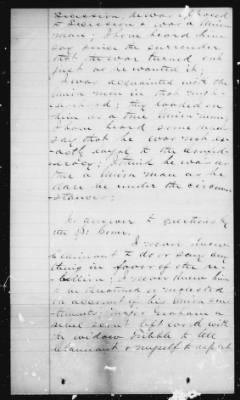 Secession, he was opposed
to Secession & was a Union
man; I have heard him
say since the surrender
that the war turned out
just as he wanted it.
I was acquainted with the
Union men in that neigh-
borhood; they looked on
him as a true Union man,
I have heard some men
say that he was not ex-
actly loyal to the confed-
eracy; I think he was as
true a Union man as he
dare be under the circum-
stances.
In answer to questions by
the Sp. Comr.
I never knew
claimant to do or say any
thing in favor of the re-
bellion; I never knew him
to be threatened or molested
on account of his Union sen-
timents; Major Graham a
rebel scout left word with
a widow to tell
claimant & myself to